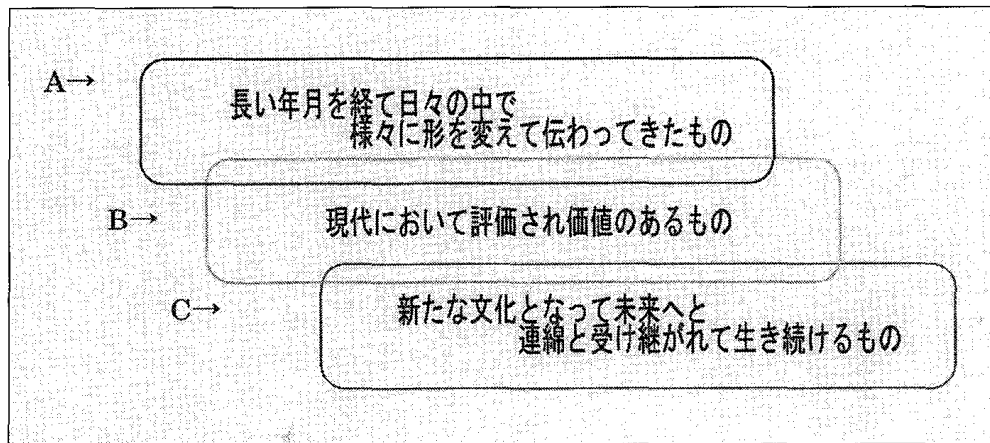 A→
長い年月を経て日々の中で
様々に形を変えて伝わってきたもの
B→
現代において評価され価値のあるもの
C→
新たな文化となって未来へと
連綿と受け継がれて生き続けるもの